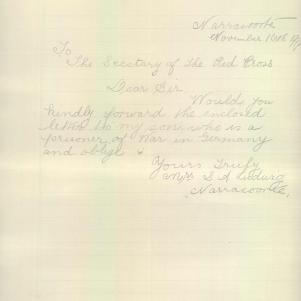 Narracoorte
November 16th
To
The Secretary of the Red Cross
Dear Sir
Would you
kindly forward the enclosed
letter to my son, who is a
prisoner of War in Germany
and oblige
Yours Truly
Mrs S A
Narracoorte.